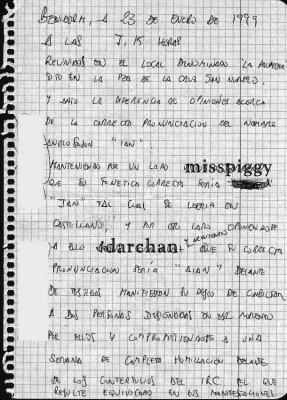 BENIDORM, A 23 DE ENERO DE 1999
A LAS 7,15 HORAS
REUNIDOS EN EL LOCAL DENOMINADO "LA PALMERA"
SITO EN LA PZA DE LA CRUZ SAN MARCO.
Y ANTE LA DIFERENCIA DE OPINIONES ACERCA
DE LA CORRECTA PRONUNCIACION DEL NOMBRE
ANGLOSAJON "IAN".
MANTENIENDO POR UN LADO misspiggy
QUE SU FONETICA CORRECTA SERIA
"IAN" TAL CUAL SE LEERIA EN
CASTELLANO, Y POR OTRO LADO OPONIENDOSE
A ELLO darchan Y QUE SU CORRECTA
PRONUNCIACION SERÍA "AIAN" DELANTE
DE TESTIGOS MANIFIESTAN SU DESEO DE
A DOS PERSONAS DESIGNADAS EN ESE MOMENTO
POR ELLOS Y COMPROMETIENDOSE A UNA
SEMANA DE COMPLETA HUMILLACION DELANTE
DE LOS CONTERTULIOS DEL IRC EL QUE
RESULTE EQUIVOCADO EN SUS MANIFESTACIONES.